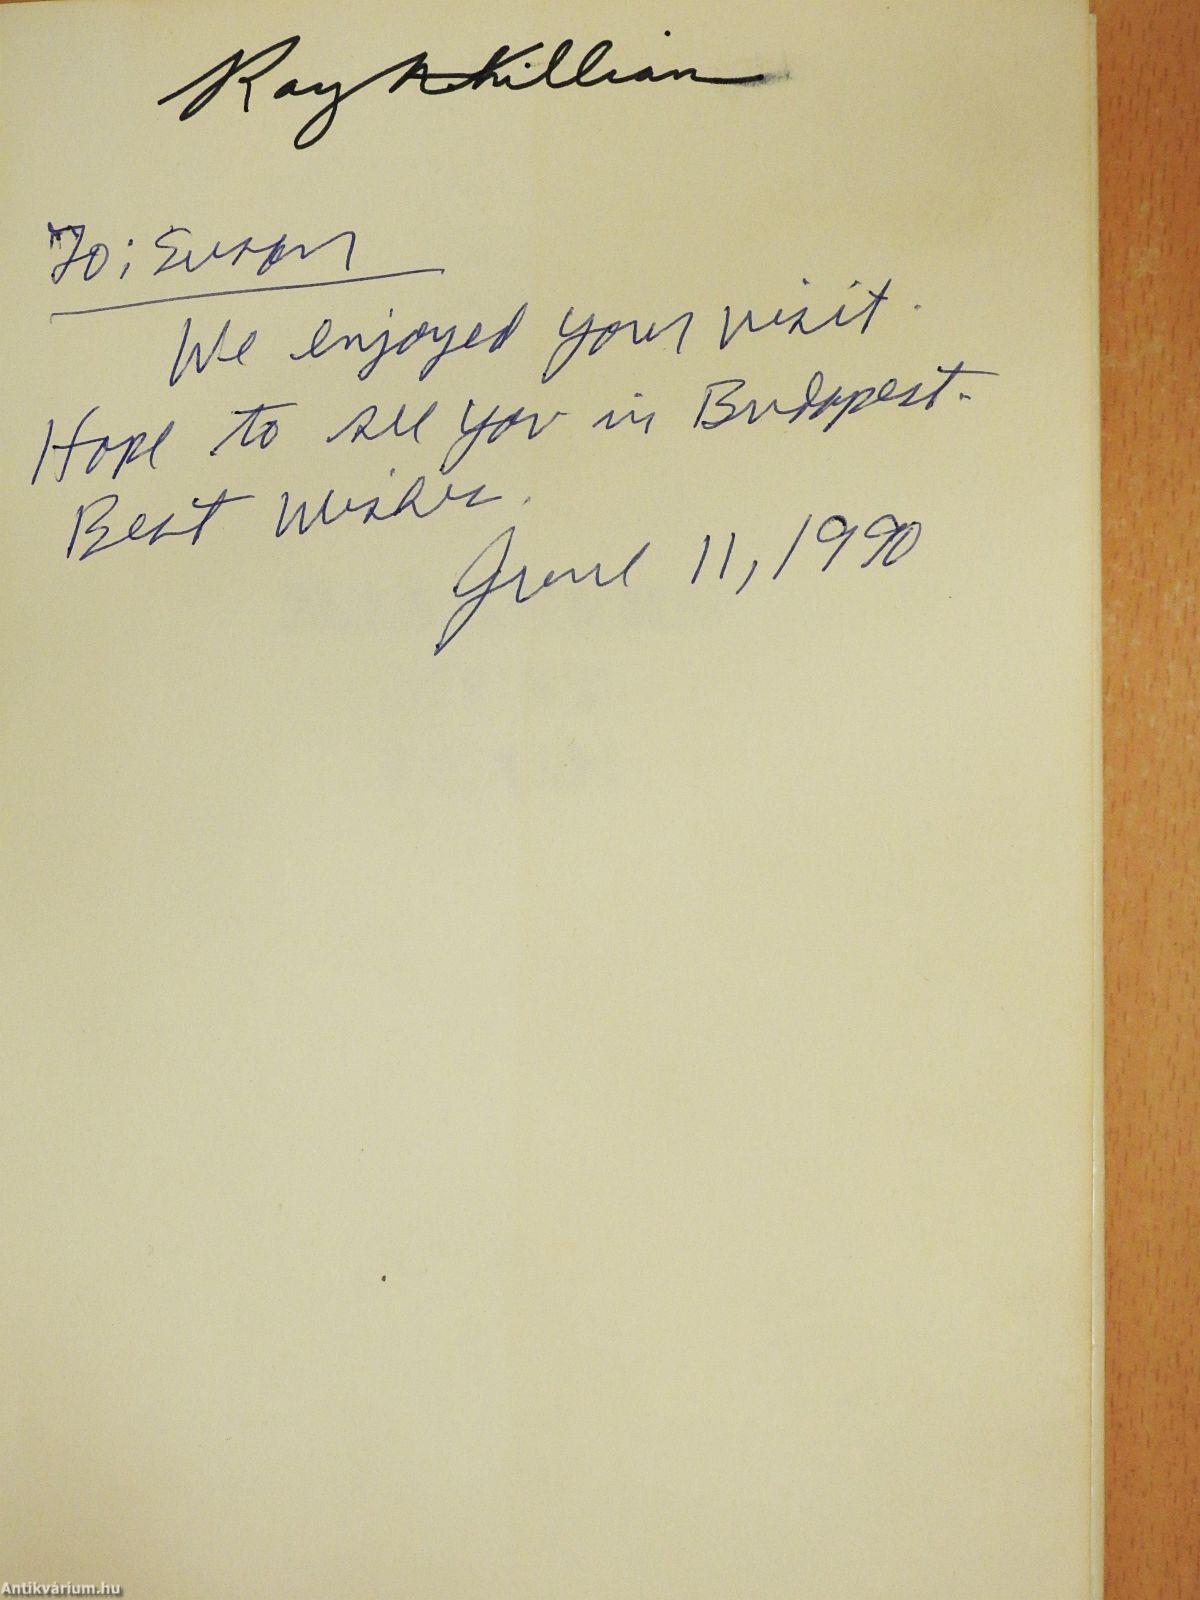 Ray A Killian
To: Susan
We enjoyed your visit.
Hope to see you in Budapest.
Best Wishes.
June 11, 1990
Antikvárium.hu